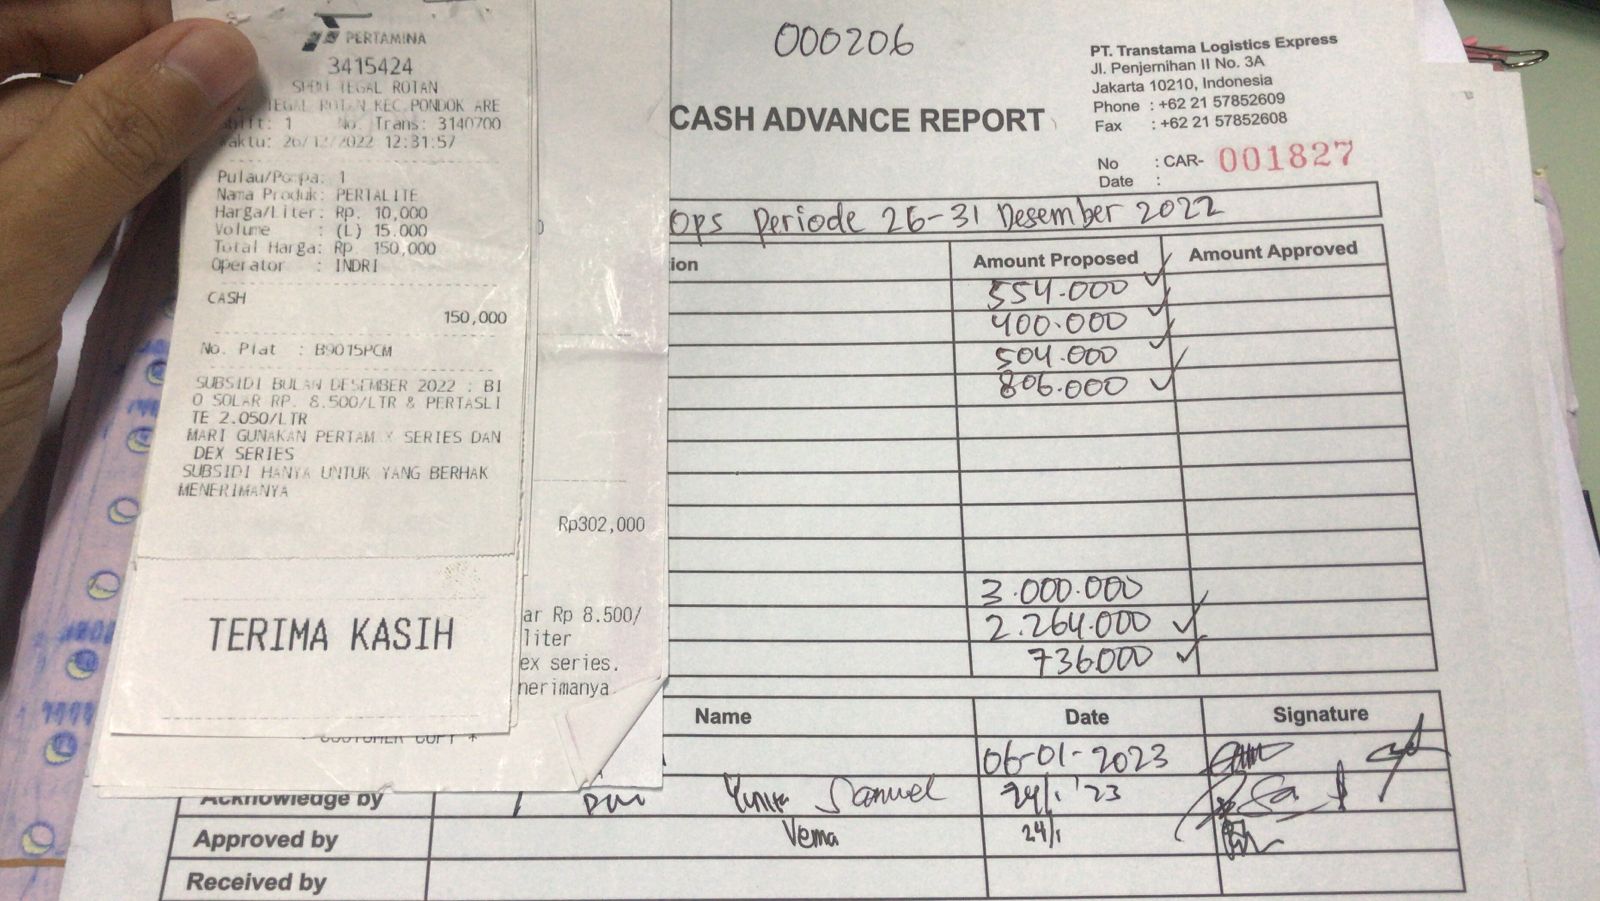 PERTAMINA
3415424
SPBU TEGAL ROTAN
TEGAL ROTAN KEC.PONDOK ARE
Shift: 1 No. Trans: 3140700
Waktu: 26/12/2022 12:31:57
Pulau/Pompa: 1
Nama Produk: PERTALITE
Harga/Liter: Rp. 10,000
Volume : (L) 15.000
Total Harga: Rp 150,000
Operator : INDRI
CASH
150,000
No. Plat : B9015PCM
SUBSIDI BULAN DESEMBER 2022 : BI
O SOLAR RP. 8.500/LTR & PERTASLI
TE 2.050/LTR
MARI GUNAKAN PERTAMAX SERIES DAN
DEX SERIES
SUBSIDI HANYA UNTUK YANG BERHAK
MENERIMANYA
TERIMA KASIH
Rp302,000
ar Rp 8.500/
liter
ex series.
nerimanya
* CUSTOMER COPY *
000206
PT. Transtama Logistics Express
Jl. Penjernihan II No. 3A
Jakarta 10210, Indonesia
Phone : +62 21 57852609
Fax : +62 21 57852608
CASH ADVANCE REPORT
No : CAR- 001827
Date :
Ops Periode 26-31 Desember 2022
ion Amount Proposed Amount Approved
554.000
400.000
504.000
806.000
3.000.000
2.264.000
736000
Name Date Signature
06-01-2023
Acknowledge by Yunita Samuel 24/1 '23
Approved by Vema 24/1
Received by